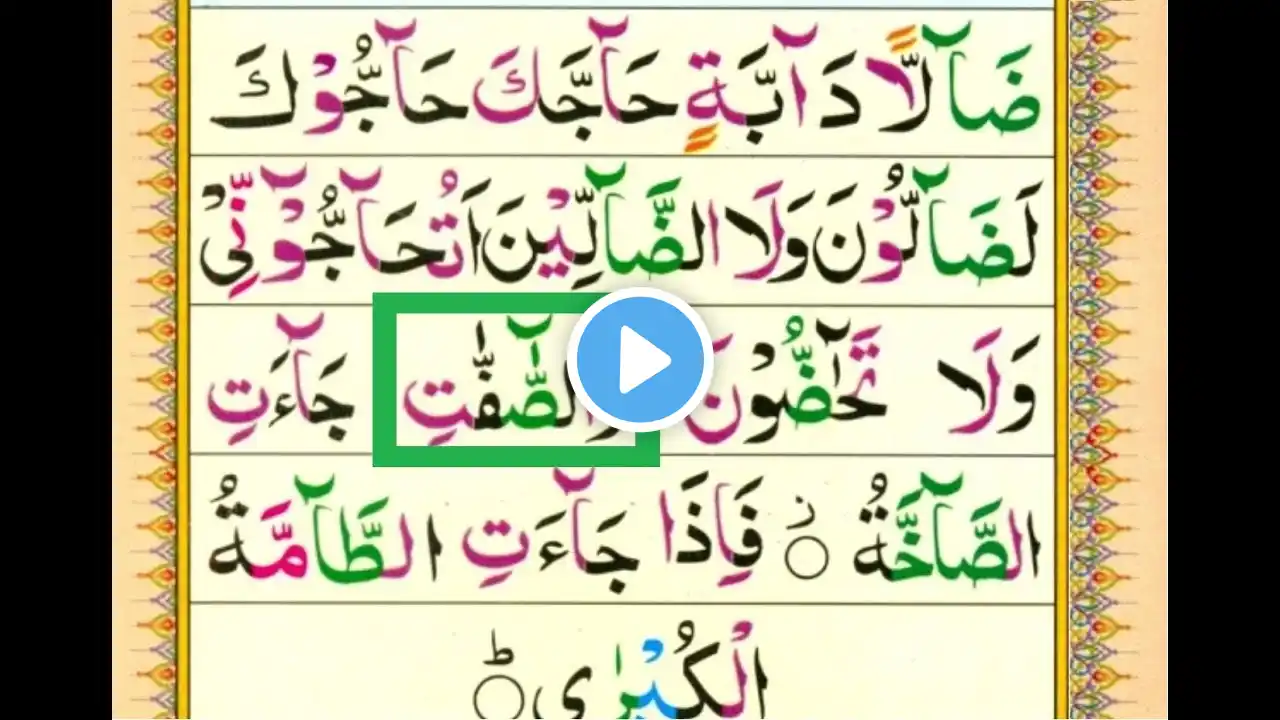 ضَآلًّا دَآبَّةٍ حَآجَّكَ حَآجُّوْكَ
لَضَآلُّوْنَ وَلَا الضَّآلِّيْنَ اَتُحَآجُّوْٓنِّيْ
وَلَا تَحٰٓضُّوْنَ وَالصّٰٓفّٰتِ جَآءَتِ
الصَّآخَّةُ ۝ز فَاِذَا جَآءَتِ الطَّآمَّةُ
الْكُبْرٰى ۝ط